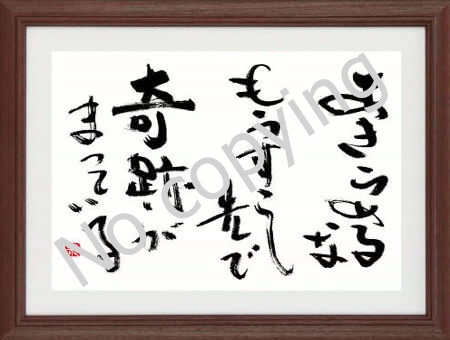 あきらめるな
もうすこし
先で
奇跡が
まっている
No copying